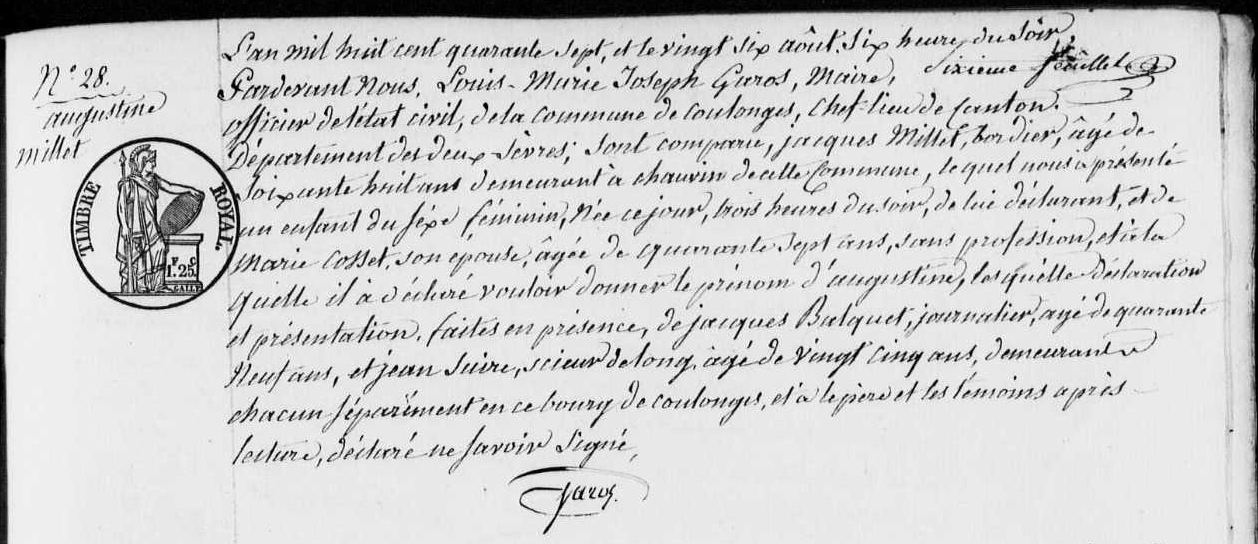 N° 28.
augustine
millet
TIMBRE ROYAL.
F. C.
1.25.
L'an mil huit cent quarante sept, et le vingt six août, six heure du soir,
Pardevant Nous, Louis-Marie Joseph Garos, Maire, Sixieme feuillet
officier de l'état civil, de la commune de coulonges, chef-lieu de Canton.
Département des deux-Sèvres; sont comparu, jacques Millet, bordier, âgé de
soixante huit ans demeurant à chauvin de cette Commune, lequel nous a présenté
un enfant du séxe féminin, Née ce jour, trois heures du soir, de lui déclarant, et de
Marie Cosset, son épouse, âgée de quarante sept ans, sans profession, et à la
quelle il à déclaré vouloir donner le prénom d'augustine, les quelle déclaration
et présentation, faites en présence, de jacques Balquet, journalier, agé de quarante
Neuf ans, et jean Suire, scieur de long, âgé de vingt cinq ans, demeurant
chacun séparément en ce bourg de coulonges, et à le père et les témoins après
lecture, déclaré ne savoir Signé,
Garos.